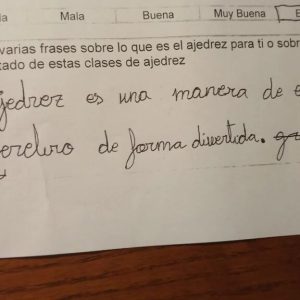 Mala Buena Muy Buena E
varias frases sobre lo que es el ajedrez para ti o sobr
tado de estas clases de ajedrez
jedrez es una manera de e
erebro de forma divertida.